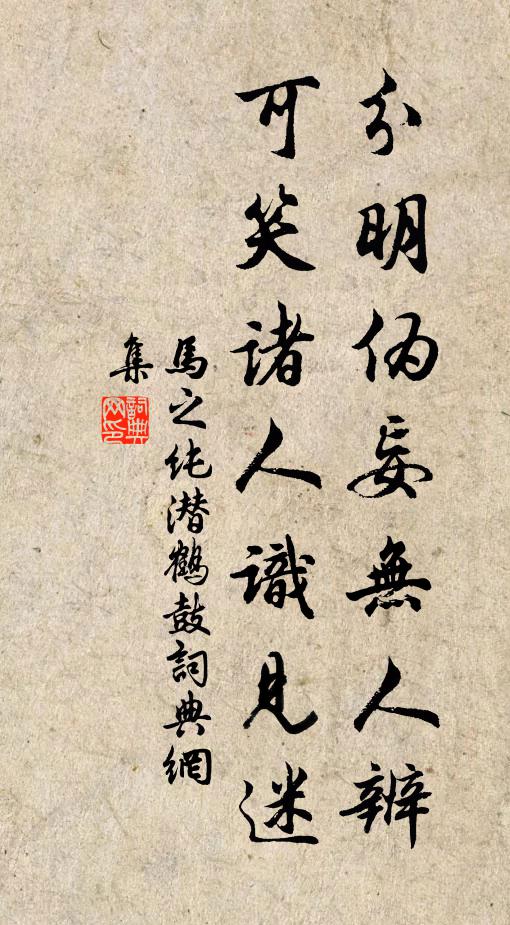 分明偽妄無人辨
可笑諸人識見迷
馬之純潜鶴鼓詞典網
集
詞典網印